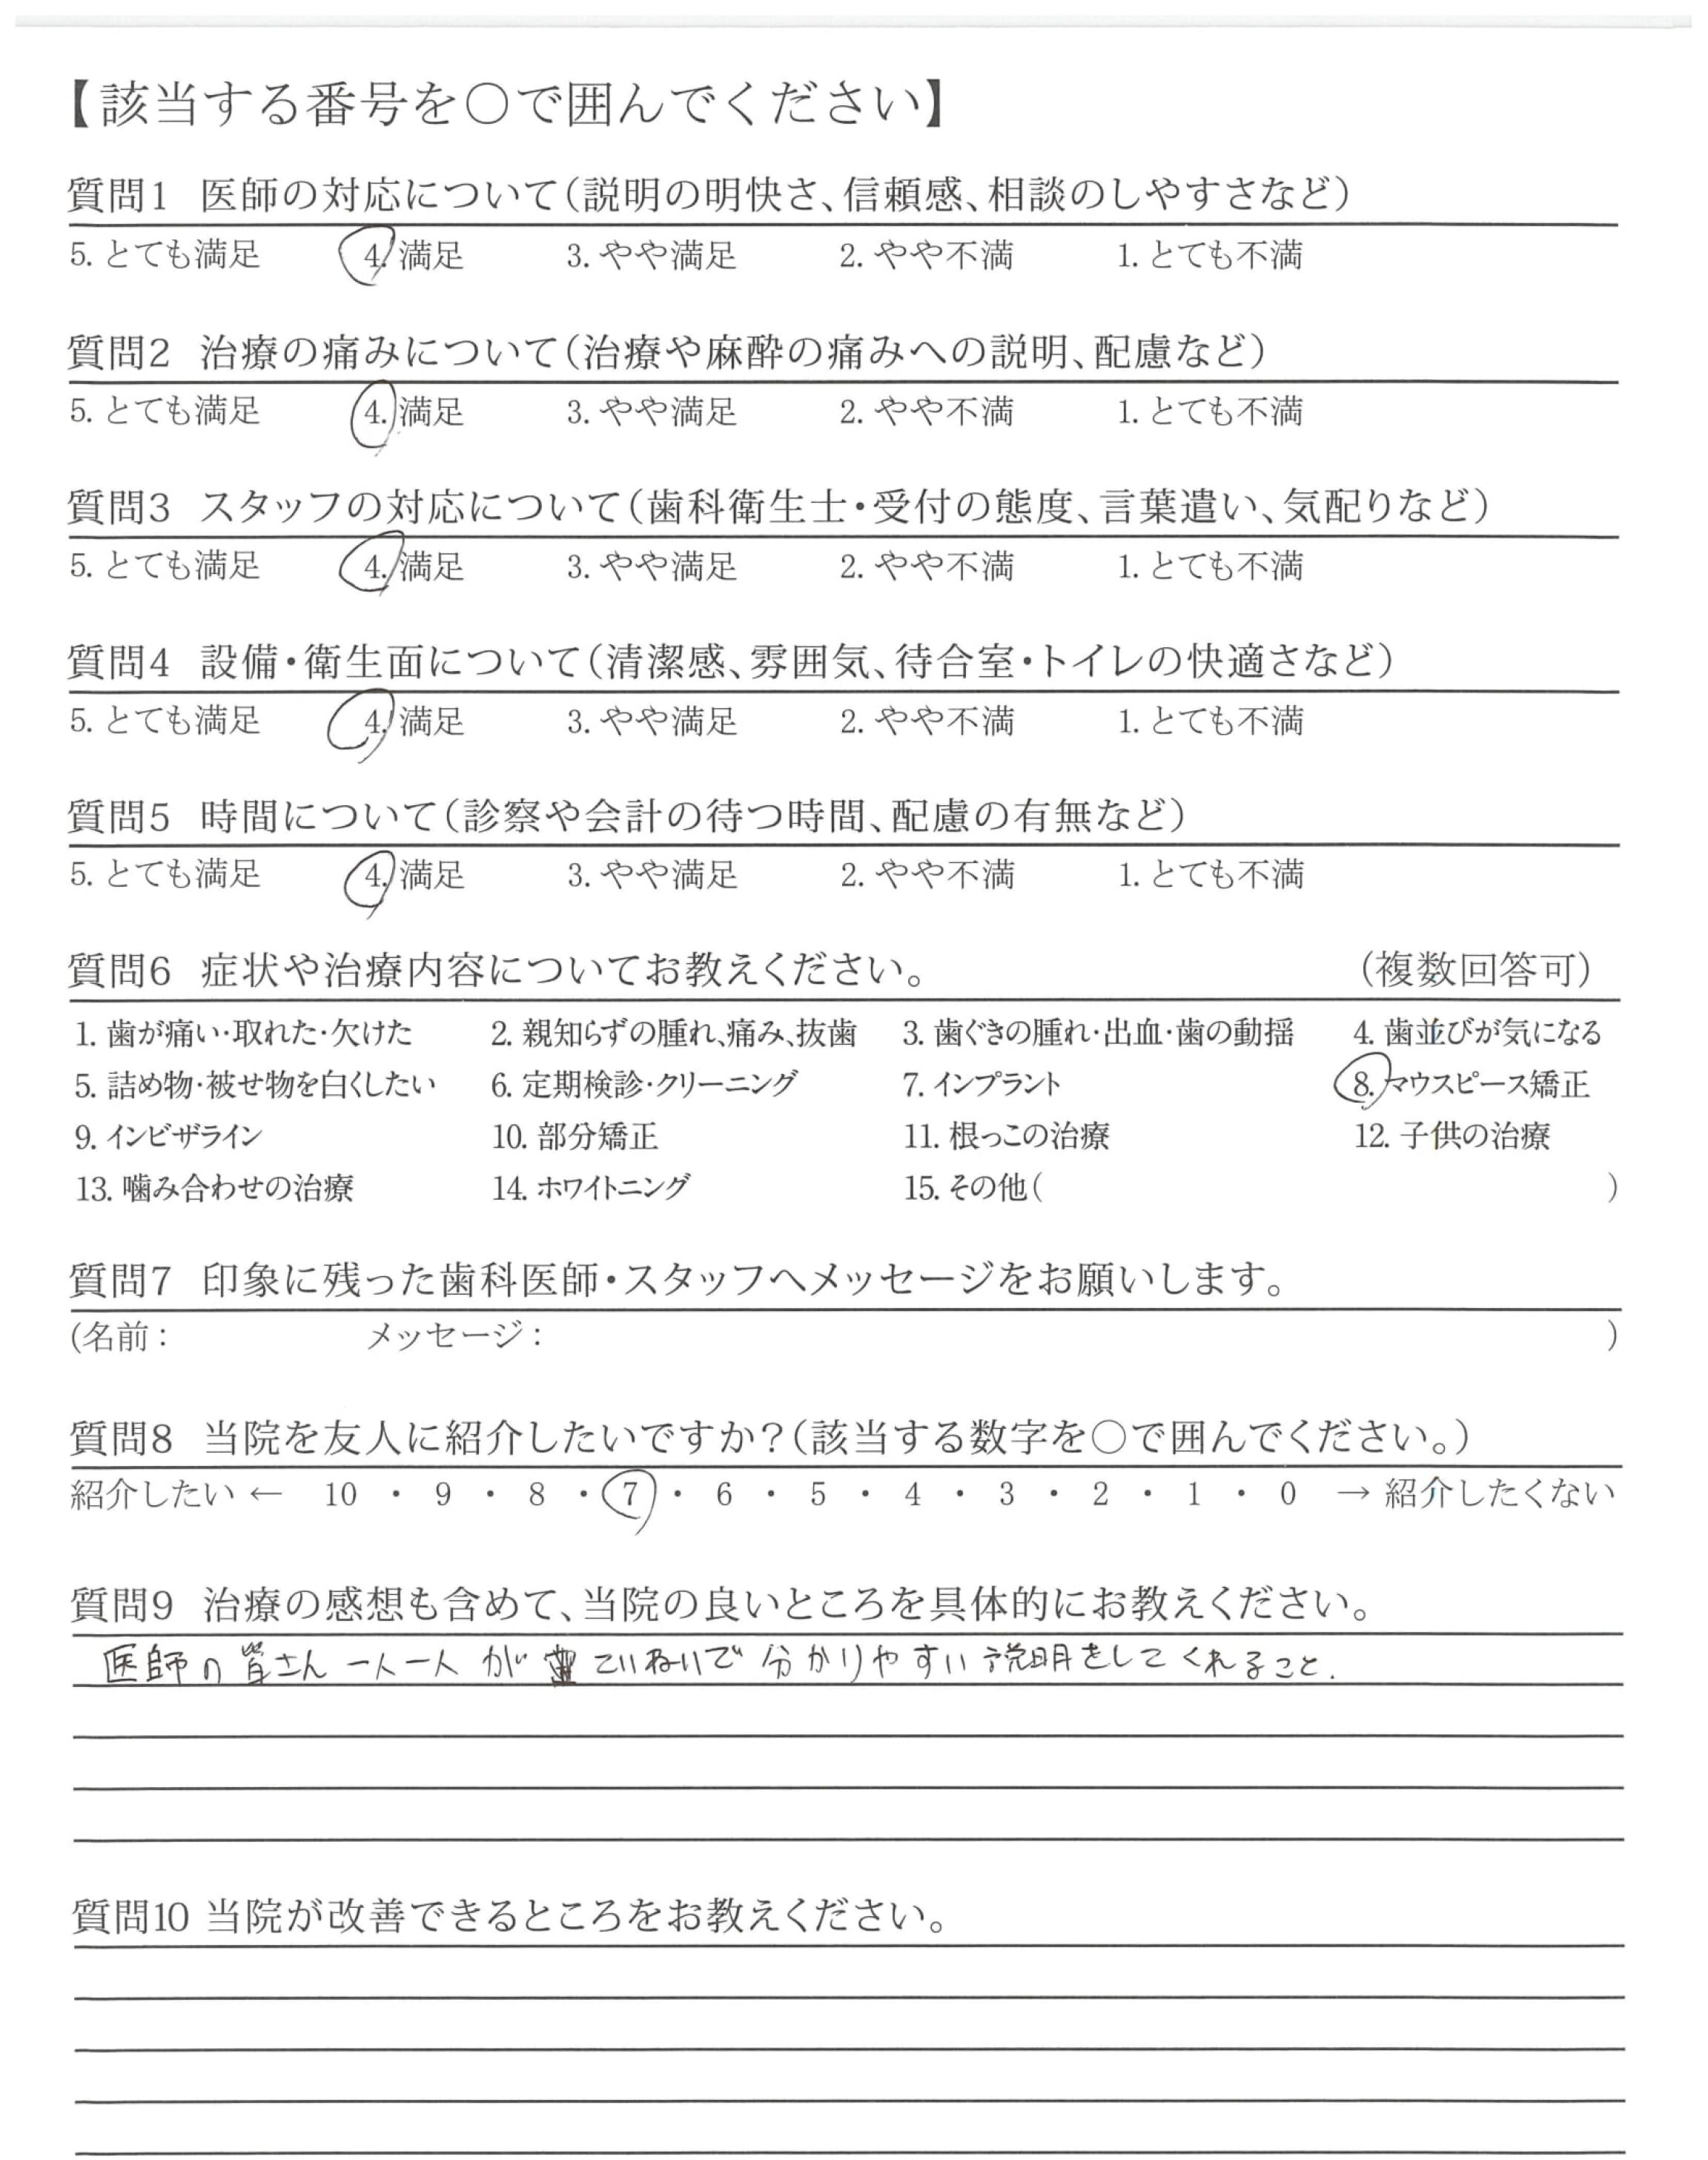 【該当する番号を〇で囲んでください】
質問1 医師の対応について（説明の明快さ、信頼感、相談のしやすさなど）
5. とても満足 4. 満足 3. やや満足 2. やや不満 1. とても不満
質問2 治療の痛みについて（治療や麻酔の痛みへの説明、配慮など）
5. とても満足 4. 満足 3. やや満足 2. やや不満 1. とても不満
質問3 スタッフの対応について（歯科衛生士・受付の態度、言葉遣い、気配りなど）
5. とても満足 4. 満足 3. やや満足 2. やや不満 1. とても不満
質問4 設備・衛生面について（清潔感、雰囲気、待合室・トイレの快適さなど）
5. とても満足 4. 満足 3. やや満足 2. やや不満 1. とても不満
質問5 時間について（診察や会計の待つ時間、配慮の有無など）
5. とても満足 4. 満足 3. やや満足 2. やや不満 1. とても不満
質問6 症状や治療内容についてお教えください。 （複数回答可）
1. 歯が痛い・取れた・欠けた 2. 親知らずの腫れ、痛み、抜歯 3. 歯ぐきの腫れ・出血・歯の動揺 4. 歯並びが気になる
5. 詰め物・被せ物を白くしたい 6. 定期検診・クリーニング 7. インプラント 8. マウスピース矯正
9. インビザライン 10. 部分矯正 11. 根っこの治療 12. 子供の治療
13. 噛み合わせの治療 14. ホワイトニング 15. その他（ ）
質問7 印象に残った歯科医師・スタッフへメッセージをお願いします。
（名前： メッセージ： ）
質問8 当院を友人に紹介したいですか？（該当する数字を〇で囲んでください。）
紹介したい ← 10 ・ 9 ・ 8 ・ 7 ・ 6 ・ 5 ・ 4 ・ 3 ・ 2 ・ 1 ・ 0 → 紹介したくない
質問9 治療の感想も含めて、当院の良いところを具体的にお教えください。
医師の皆さん一人一人が ていねいで分かりやすい説明をしてくれること.
質問10 当院が改善できるところをお教えください。